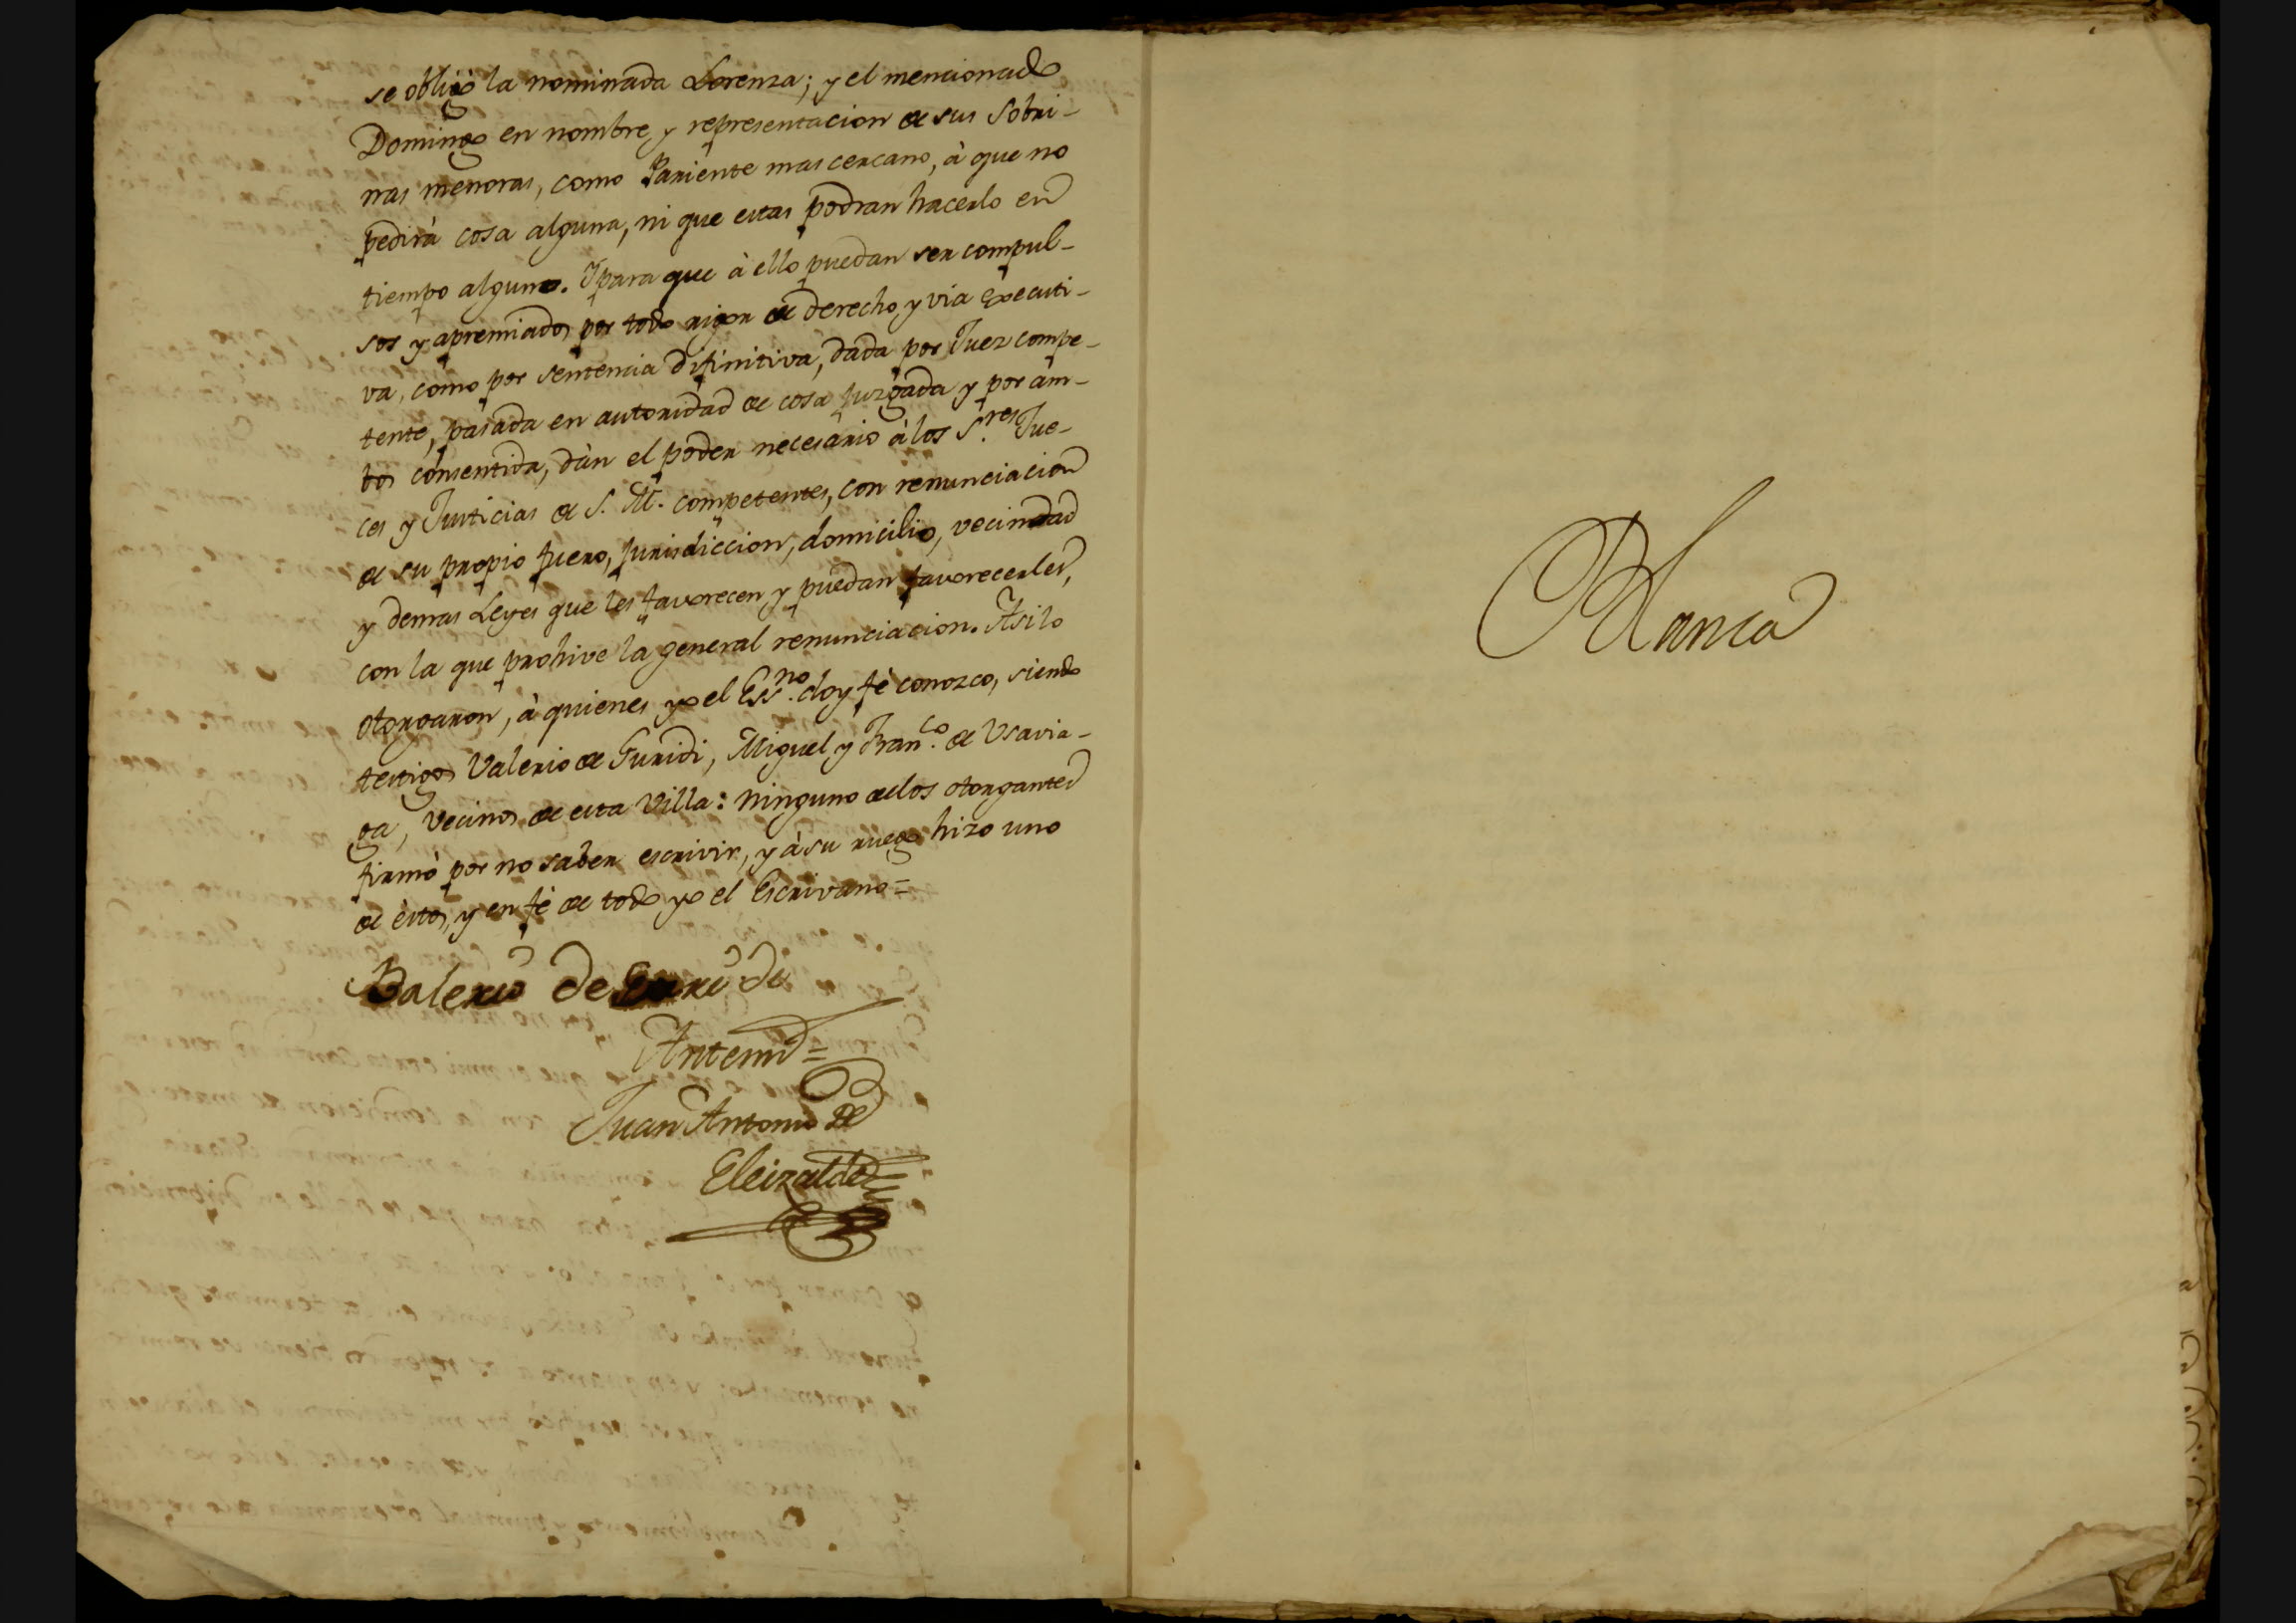 se obligò la nominada Lorenza; y el mencionado
Domingo en nombre, y representacion de sus Sobri-
nas menoras, como Pariente mas cercano, à que no
pedirà cosa alguna, ni que estas podran hacerlo en
tiempo alguno. Y para que à ello puedan ser compul-
sos y apremiados por todo rigor de derecho, y via executi-
va, como por sentencia difinitiva, dada por Juez compe-
tente, pasada en autoridad de cosa juzgada y por am-
bos consentida, dàn el poder necesario à los S.res Jue-
ces y Justicias de S. M. competentes, con renunciacion
de su propio fuero, jurisdiccion, domicilio, vecindad
y demas Leyes que les favorecen y puedan favorecerles,
con la que prohive la general renunciacion. Asi lo
otorgaron, à quienes yo el Ess.no doy fè conozco, siendo
testigos Valerio de Guridi, Miguel y Fran.co de Usavia-
ga, vecinos de esta Villa: ninguno de los otorgantes
firmò por no saber escrivir, y à su ruego hizo uno
de èstos, y en fè de todo yo el Escrivano=
Balerio de Guridi
Antemi=
Juan Antonio de
Eleizalde
Blanca